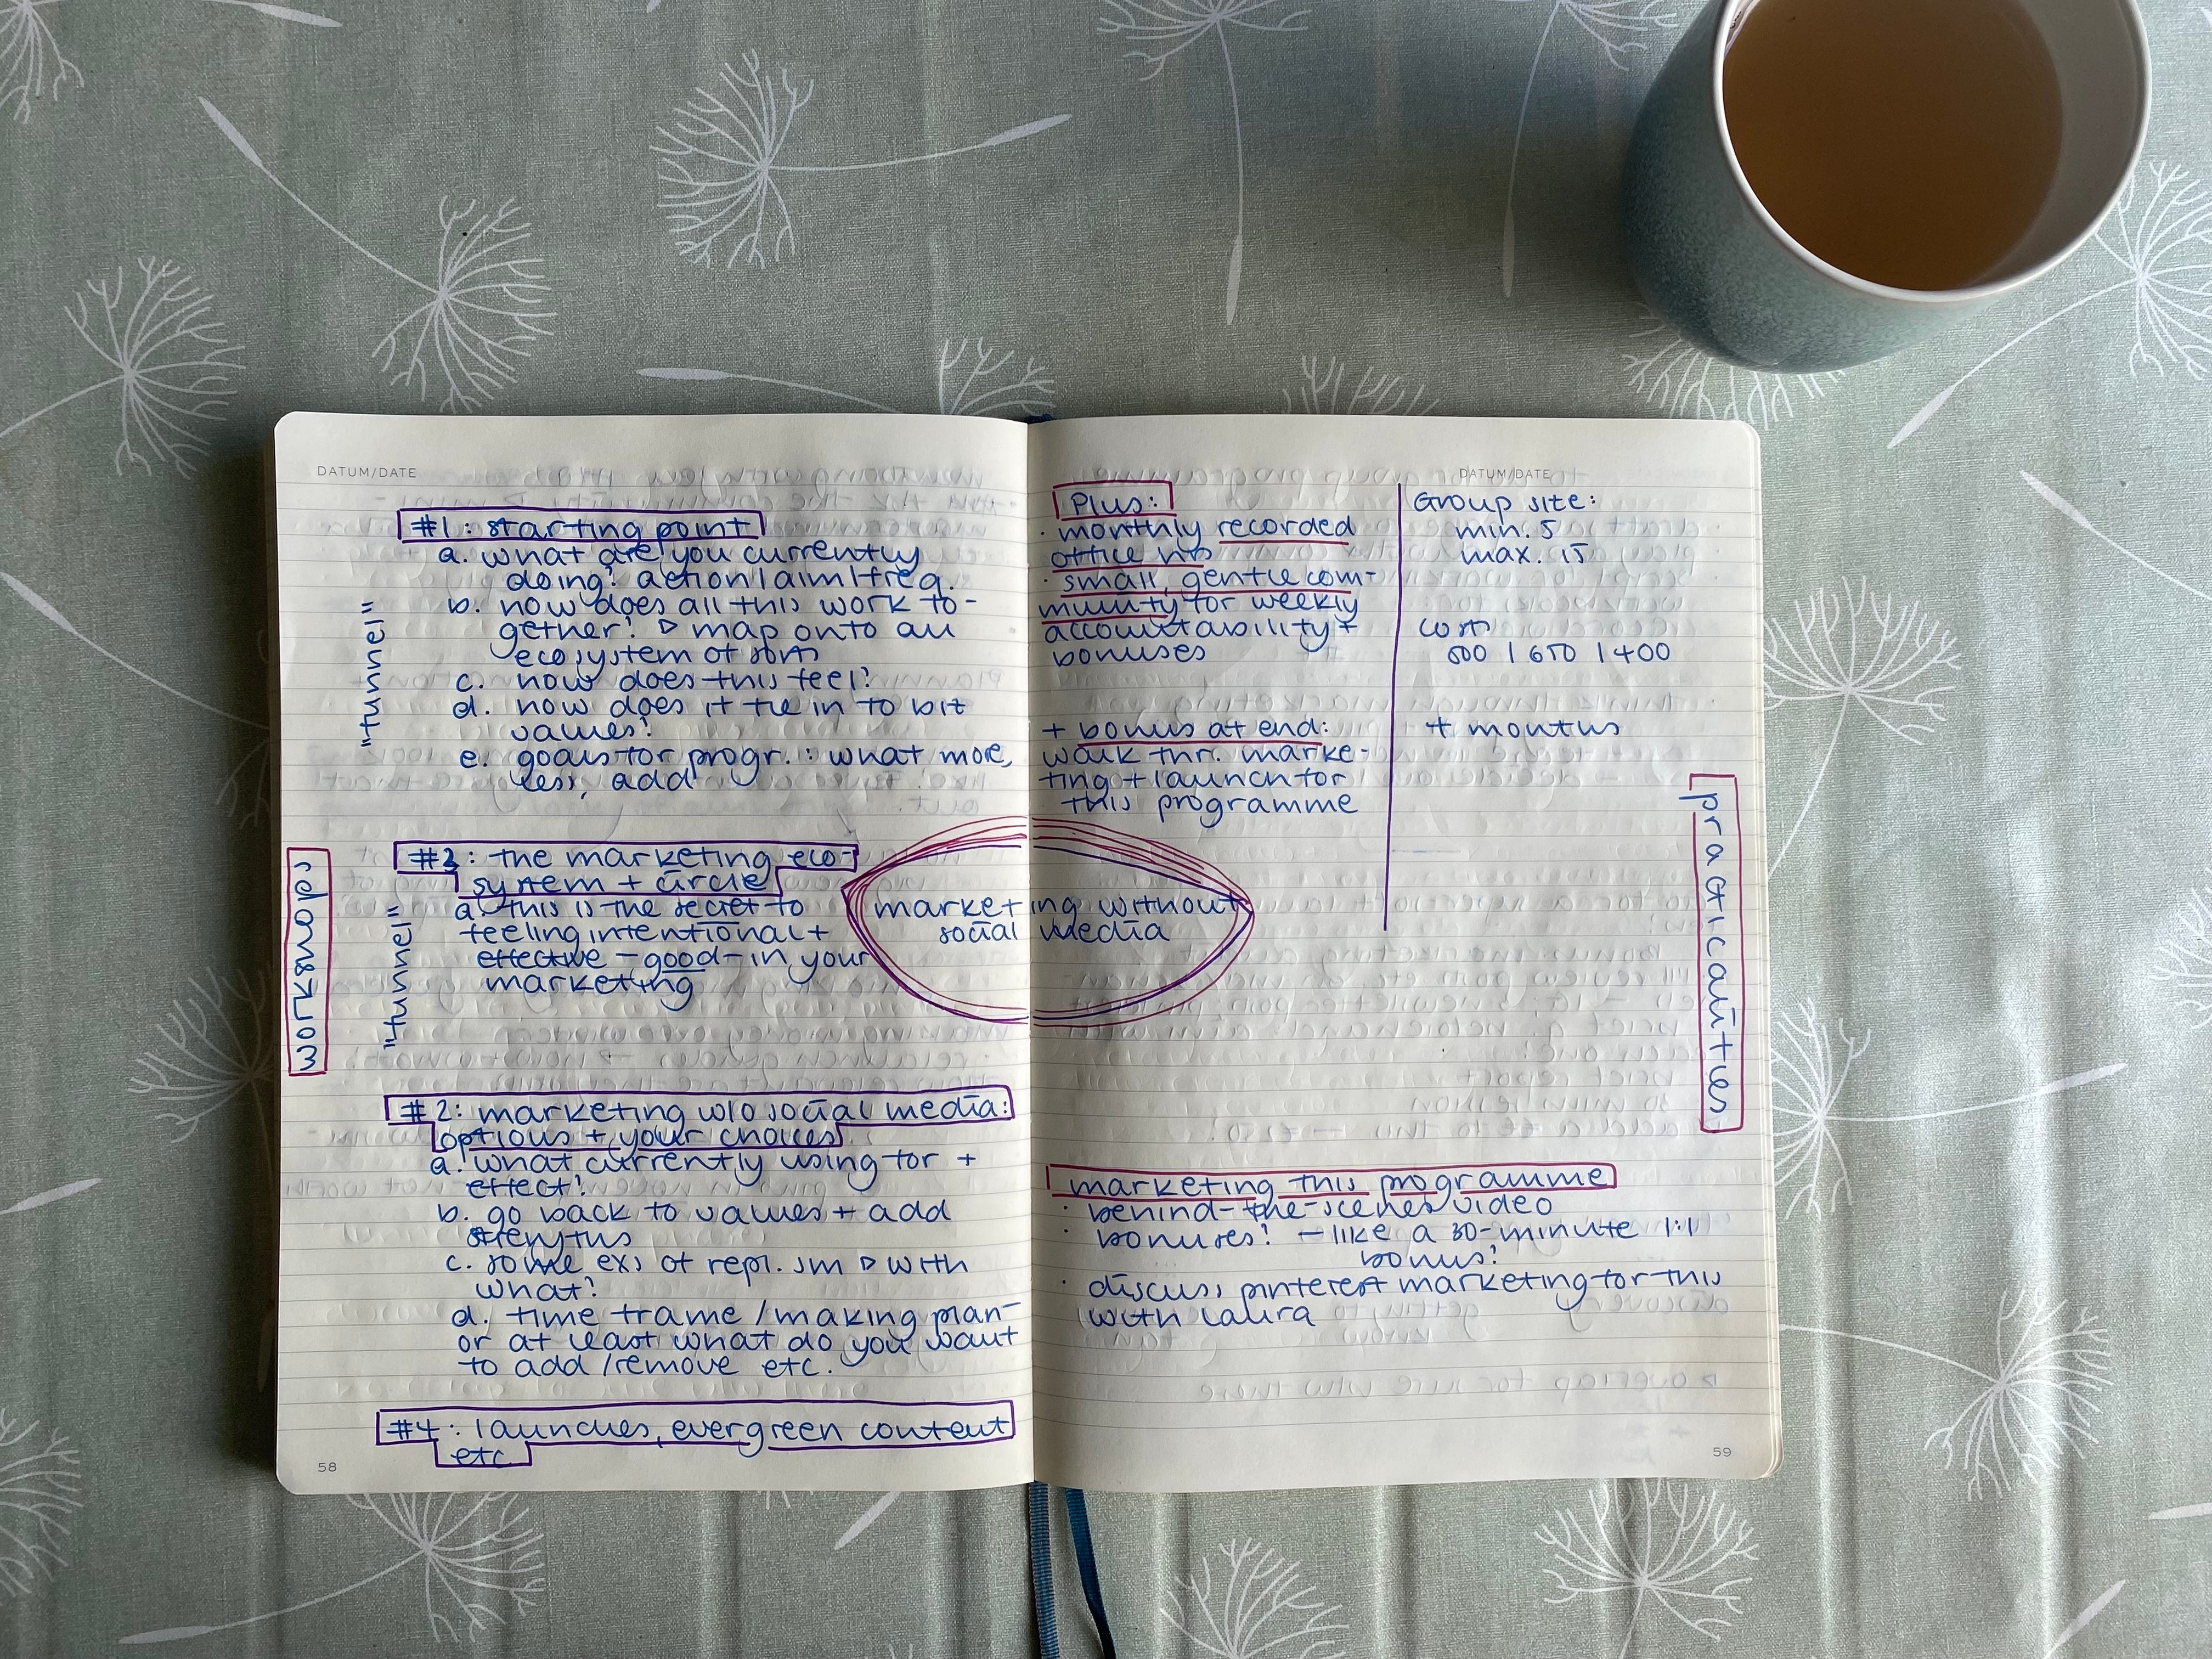 DATUM/DATE
#1: starting point
a. what are you currently
doing? action/aim/freq.
b. how does all this work to-
gether? ▷ map onto an
ecosystem of
c. how does this feel?
d. how does it tie in to biz
values?
e. goals for progr.: what more,
less, add
"funnel"
workshops
#3: the marketing eco-
system + circle
a. this is the secret to
feeling intentional +
effective – good – in your
marketing
"funnel"
#2: marketing w/o social media:
options + your choices
a. what currently using for +
effect?
b. go back to values + add
strengths
c. some exs of repl. sm ▷ with
what?
d. time frame / making plan –
or at least what do you want
to add / remove etc.
#4: launches, evergreen content
etc.
58
marketing without
social media
DATUM/DATE
Plus:
· monthly recorded
office hrs
· small, gentle com-
munity for weekly
accountability +
bonuses
+ bonus at end:
walk thr. marke-
ting + launch for
this programme
Group size:
min. 5
max. 15
cost
/ 650 / 400
4 months
practicalities
marketing this programme
· behind-the-scenes video
· bonuses? – like a 30-minute 1:1
bonus?
· discuss pinterest marketing for this
with laura
59